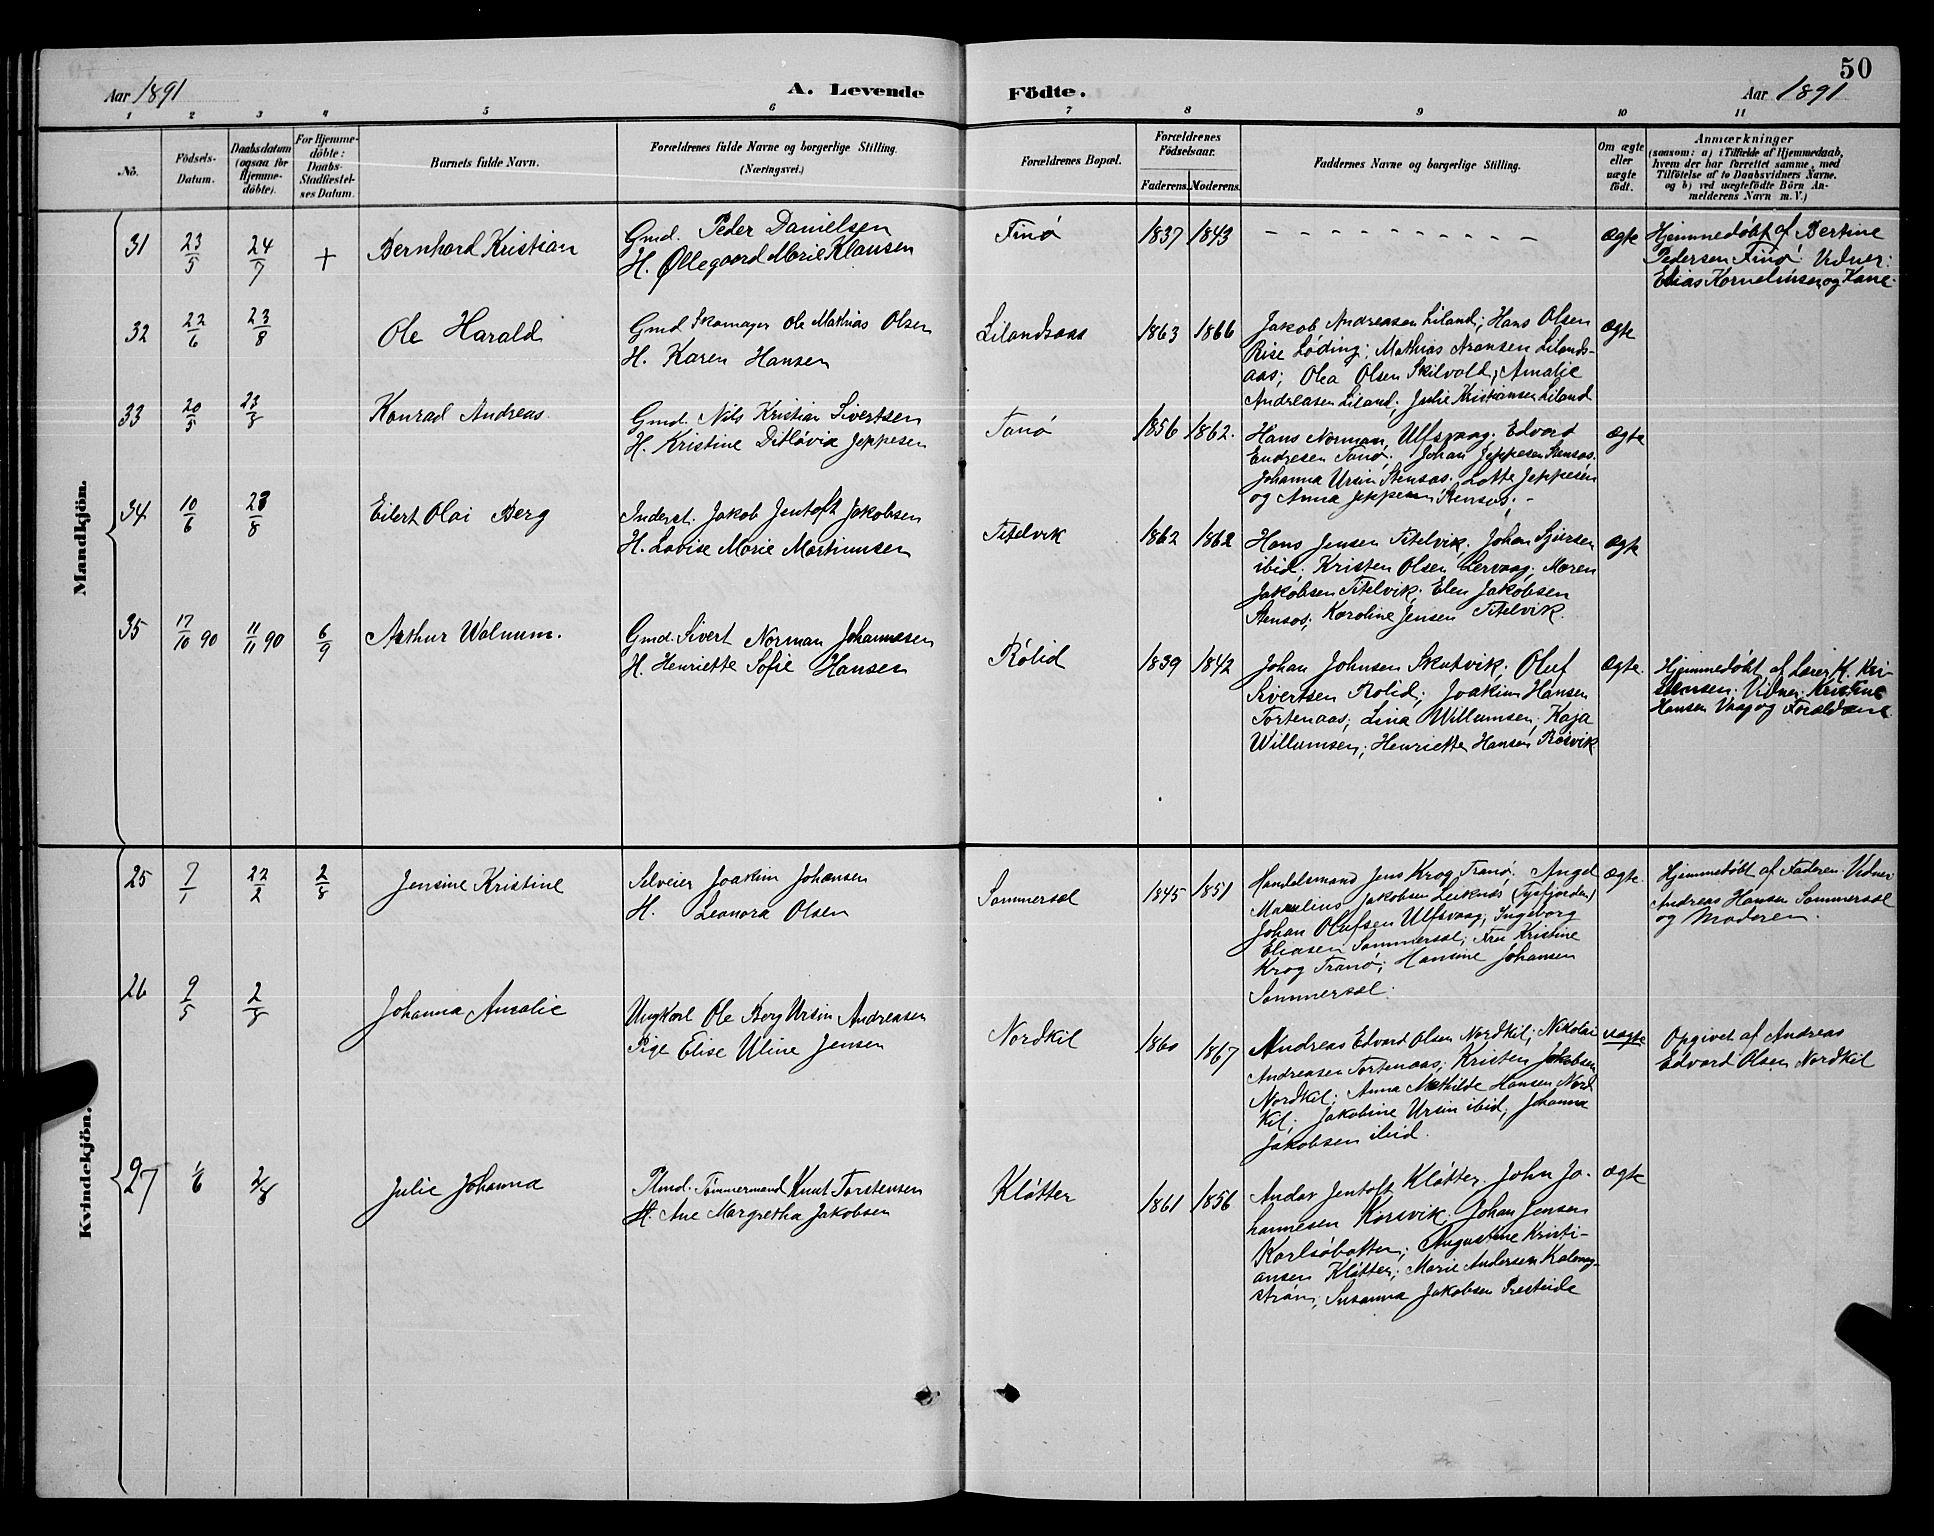 50
Aar 1891
A. Levende
Födte.
Aar 1891
1 2 3 4 5 6 7 8 9 10 11
No.
Födsels-
Datum.
Daabsdatum
(ogsaa for
Hjemme-
döbte).
For Hjemme-
döbte:
Daabs
Stadfæstel-
ses Datum.
Barnets fulde Navn.
Forældrenes fulde Navne og borgerlige Stilling.
(Næringsvei.)
Forældrenes Bopæl.
Forældrenes
Födselsaar.
Faderens. Moderens.
Faddernes Navne og borgerlige Stilling.
Om ægte
eller
uægte
födt.
Anmærkninger
(saasom: a) i Tilfælde af Hjemmedaab,
hvem der har forrettet samme, med
Tilföielse af to Daabsvidners Navne,
og b) ved uægtefödte Börn An-
melderens Navn m. V.)
Mandkjön.
31 23/5 24/7 + Bernhard Kristian
Gmd. Peder Danielsen
H. Øllegaard Marie Klausen
Finø 1837 1843 - - - - - - - - - - Ægte
Hjemmedøbt af Bertine
Pedersen Finø. Vidner:
Elias Kornelinsen og Kone.
32 22/6 23/8 Ole Harald
Gmd Skomager Ole Mathias Olsen
H. Karen Hansen
Lilandsaas 1863 1866
Jakob Andreasen Liland; Hans Olsen
Rise Løding; Mathias Aronsen Lilands-
aas; Olea Olsen Skilvold; Amalie
Andreasen Liland; Julie Kristiansen Liland
Ægte
33 20/5 23/8 Konrad Andreas.
Gmd. Nils Kristian Sivertsen
H. Kristine Ditlovia Jeppesen
Tanø 1856 1862.
Hans Norman, Ulfsvaag; Edvard
Endresen Tanø; Johan Jeppesen Stensos.
Johanna Ursin Stensos; Lotte Jeppesen
og Anna Jeppesen Stensos. -
Ægte
34 10/6 23/8 Eilert Olai Berg
Inderst. Jakob Jentoft Jakobsen
H. Lovise Marie Martinusen
Titelvik 1862 1862
Hans Jensen Titelvik; Johan Sjursen
ibid. Kristen Olsen Lervaag; Maren
Jakobsen Titelvik; Elen Jakobsen
Stensos; Karoline Jensen Titelvik.
Ægte
35 17/10 90 11/11 90 6/9 Arthur Walnum.
Gmd. Sivert Norman Johannesen
H. Henriette Sofie Hansen
Rølid 1839 1842
Johan Johnsen Skutvik; Oluf
Sivertsen Rolid; Joakim Hansen
Tortenaas; Lina Willumsen; Kaja
Willumsen; Henriette Hansen Rosvik
Ægte.
Hjemmedøbt af Lærer K. Kri-
stensen. Vidner: Kristine
Hansen Vaag og Forældrene.
Kvindekjön.
25 7/1 22/2 2/8 Jensine Kristine
Selveier Joakim Johansen
H. Leonora Olsen
Sommersel 1845 1851
Handelsmand Jens Krog Tranø; Angel
Marelius Jakobsen Leiknes (Tysfjorden)
Johan Olufsen Ulfsvaag; Ingeborg
Eliasen Sommersel; Fru Kristine
Krog Tranø; Hansine Johansen
Sommersel.
Ægte.
Hjemmedøbt af Faderen. Vidner
Andreas Hansen Sommersel
og Moderen.
26 9/5 2/8 Johanna Amalie
Ungkarl Ole Berg Ursin Andreasen
Pige Elise Uline Jensen
Nordkil 1860 1867
Andreas Edvard Olsen Nordkil; Nikolai
Andreasen Tortenaas; Kristen Jakobsen
Nordkil; Anna Mathilde Hansen Nord
kil; Jakobine Ursin ibid; Johanna
Jakobsen ibid.
uægte
Opgivet af Andreas
Edvard Olsen Nordkil
27 1/6 2/8 Julie Johanna
Plmd. Tømmermand Knut Torstensen
H. Ane Margretha Jakobsen
Kløtter 1861 1856
Andor Jentoft Kløtter. John Jo-
hannesen Korsvik. Johan Jensen
Karlsøbotten; Augustine Kristi-
ansen Kløtter; Marie Andersen
Susanna Jakobsen Presteide
Ægte